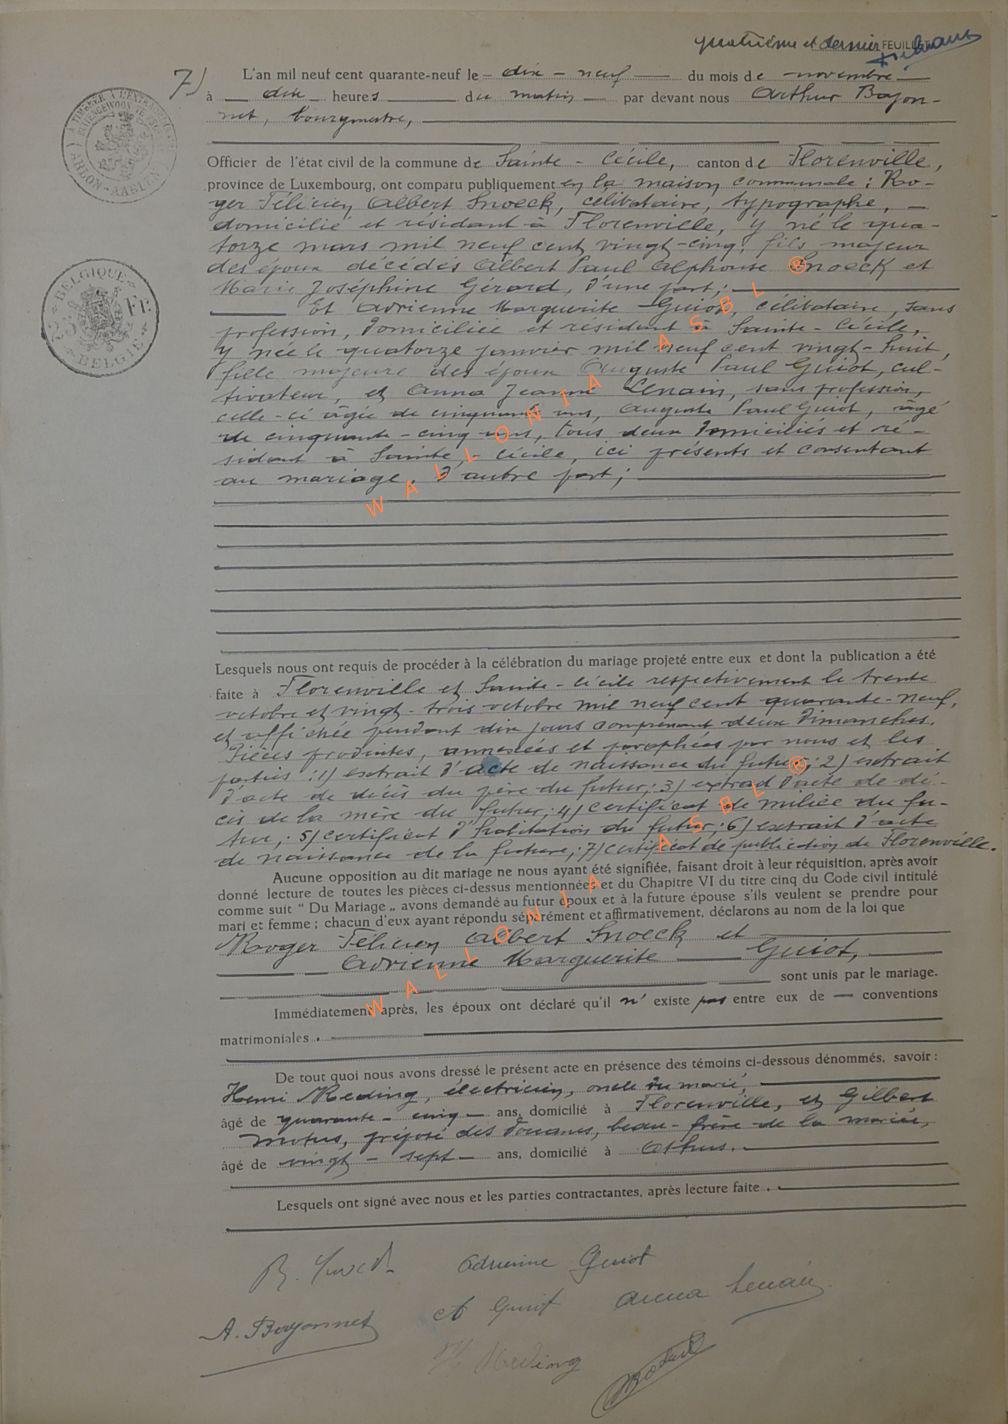 quatrième et dernier FEUILLET
7)
L'an mil neuf cent quarante-neuf le – dix – neuf — du mois de – novembre –
à — dix – heures — du matin — par devant nous Arthur Bajon-
net, bourgmestre,
Officier de l'état civil de la commune de Sainte – Cécile, canton de Florenville,
province de Luxembourg, ont comparu publiquement en la maison communale : Ro-
ger Félicien Albert Snoeck, célibataire, typographe, –
domicilié et résidant à Florenville, y né le qua-
torze mars mil neuf cent vingt-cinq, fils majeur
des époux décédés Albert Paul Alphonse Snoeck et
Marie Joséphine Gérard, d'une part;
Et Adrienne Marguerite Guiot, célibataire, sans
profession, domiciliée et résidant à Sainte-Cécile,
y née le quatorze janvier mil neuf cent vingt-huit,
fille majeure des époux Auguste Paul Guiot, cul-
tivateur, et Anna Jeanne Lenain, sans profession,
celle-ci âgée de cinquante ans, Auguste Paul Guiot, âgé
de cinquante-cinq ans, tous deux domiciliés et ré-
sidant à Sainte-Cécile, ici présents et consentant
au mariage, d'autre part;
Lesquels nous ont requis de procéder à la célébration du mariage projeté entre eux et dont la publication a été
faite à Florenville et Sainte-Cécile respectivement le trente
octobre et vingt-trois octobre mil neuf cent quarante-neuf,
et affichée pendant dix jours comprenant deux dimanches.
Pièces produites, annexées et paraphées par nous et les
parties : 1) extrait d'acte de naissance du futur; 2) extrait
d'acte de décès du père du futur; 3) extrait d'acte de dé-
cès de la mère du futur; 4) certificat de milice du fu-
tur; 5) certificat d'habitation du futur; 6) extrait d'acte
de naissance de la future; 7) certificat de publication de Florenville.
Aucune opposition au dit mariage ne nous ayant été signifiée, faisant droit à leur réquisition, après avoir
donné lecture de toutes les pièces ci-dessus mentionnées et du Chapitre VI du titre cinq du Code civil intitulé
comme suit " Du Mariage „ avons demandé au futur époux et à la future épouse s'ils veulent se prendre pour
mari et femme ; chacun d'eux ayant répondu séparément et affirmativement, déclarons au nom de la loi que
Roger Félicien Albert Snoeck et
Adrienne Marguerite — Guiot,
sont unis par le mariage.
Immédiatement après, les époux ont déclaré qu'il n' existe pas entre eux de — conventions
matrimoniales .
De tout quoi nous avons dressé le présent acte en présence des témoins ci-dessous dénommés, savoir :
Henri Meding, électricien, oncle du marié,
âgé de quarante-cinq – ans, domicilié à Florenville, et Gilbert
Motus, préposé des douanes, beau-frère de la mariée,
âgé de vingt – sept – ans, domicilié à Athus.
Lesquels ont signé avec nous et les parties contractantes, après lecture faite .
R. Snoeck Adrienne Guiot
A. Bajonnet A Guiot Anna Lenain
H. Meding
BELGIQUE
BELGIË
ARLON-AARLEN
WALLONIA ASBL ®
WALLONIA ASBL ®